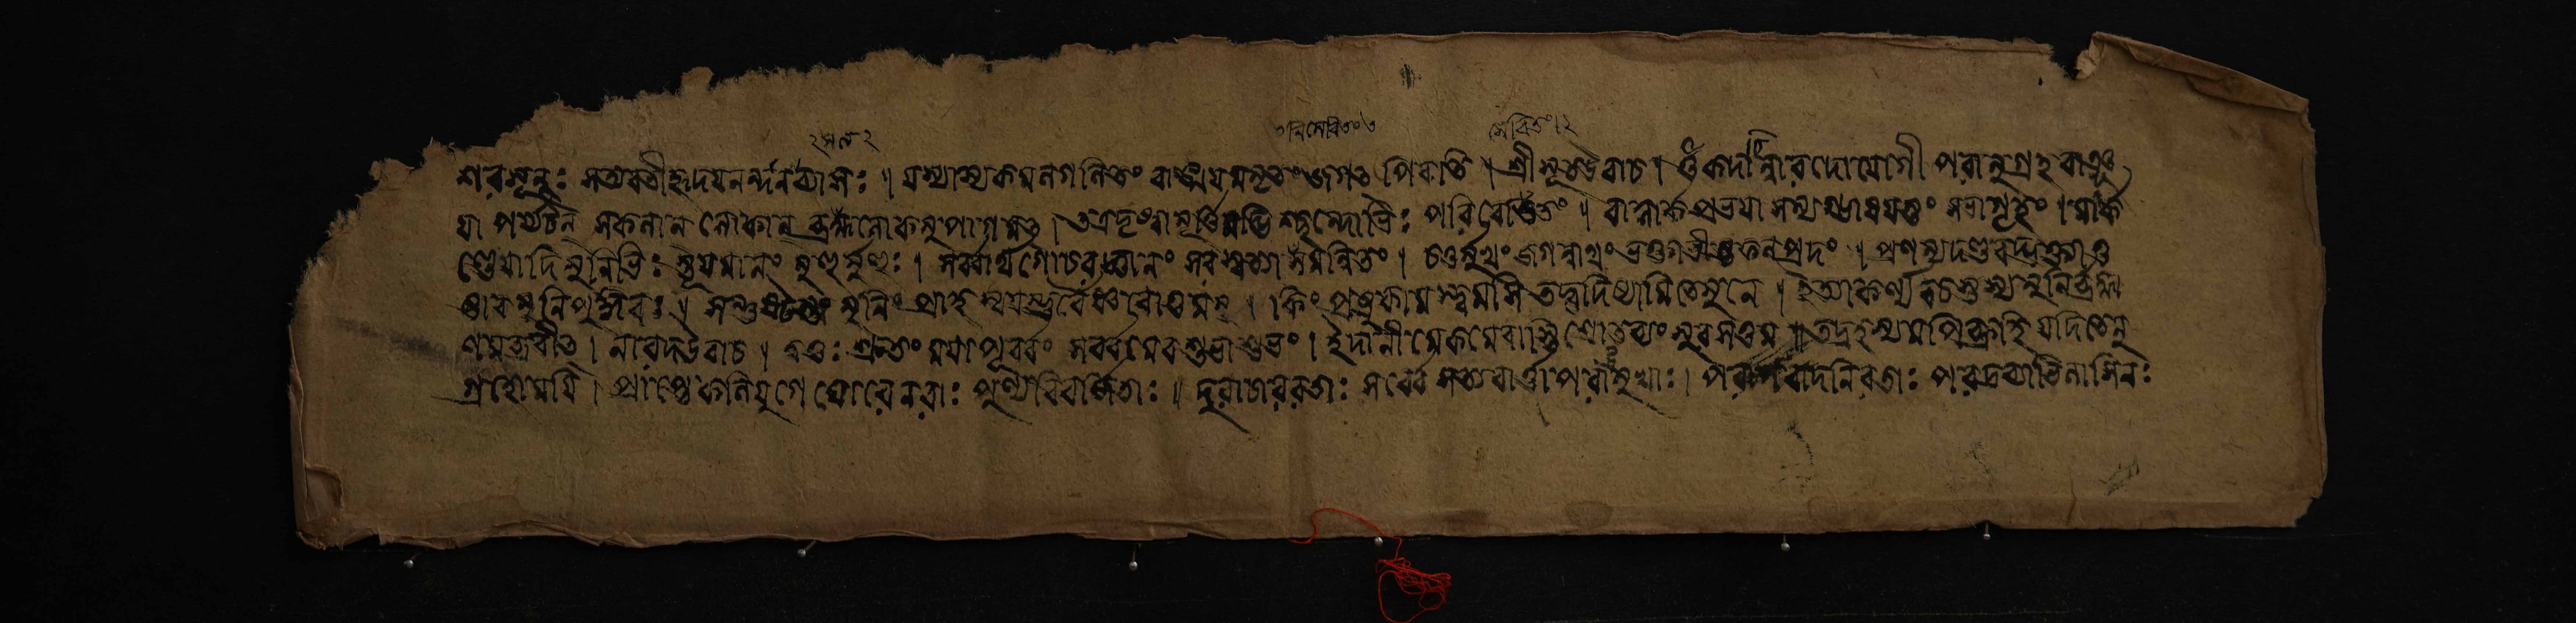 ২সূন২ ৩রিসেবিতং৩ সেবিতং।২
শরসূনুঃ সত্যবতীহৃদযনন্দনব্যাসঃ ॥ যস্যাস্যকমলগলিতং বাঙ্ময়মমৃতং জগত্ পিবতি । শ্রীসূত উবাচ । ওঁ কদাচিন্নারদোযোগী পরানুগ্রহবাঞ্ছ
যা পর্য্যটন্ সকলান লোকান্ ব্রহ্মলোকমুপাগমত্ । তত্রদৃষ্ট্বামূর্ত্তিমদ্ভি শ্ছন্দোভিঃ পরিবেষ্টিতং ॥ বালার্কপ্রভযা সম্যগ্ভাসযন্তং সভাগৃহং । মার্ক
ণ্ডেযাদিমুনিভিঃ স্তূযমানং মুহুর্মুহুঃ । সর্ব্বার্থগোচরজ্ঞানং সরস্বত্যা সমন্বিতং । চতুর্মুখং জগন্নাথং ভক্তাভীষ্টফলপ্রদং ॥ প্রণম্যদণ্ডবদ্ভক্ত্যাতু
ষ্টাবমুনিপুঙ্গবঃ । সন্তুষ্টস্তং মুনিং প্রাহ স্বযম্ভূর্বৈষ্ণবোত্তমং । কিং প্রষ্টুকামস্ত্বমসি তদ্বদিষ্যামিতেমুনে । ইত্যাকর্ণ্যবচস্তস্যমুনির্ব্রহ্মা
ণমব্রবীত্ । নারদ উবাচ । ত্বত্তঃ শ্রুতং মযা পূর্ব্বং সর্ব্বমেবশুভাশুভং । ইদানীমেকমেবাস্তিশ্রোতব্যং সুরসত্তম ॥ তদ্রহস্যমপিব্রূহি যদিতেনু
গ্রহোমযি । প্রাপ্তেকলিযুগে ঘোরেনরাঃ পুণ্যবিবর্জিতাঃ ॥ দুরাচাররতাঃ সর্ব্বে সত্যবার্ত্তাপরাঙ্মুখাঃ । পরাপবাদনিরতাঃ পরদ্রব্যাভিলাসিনঃ